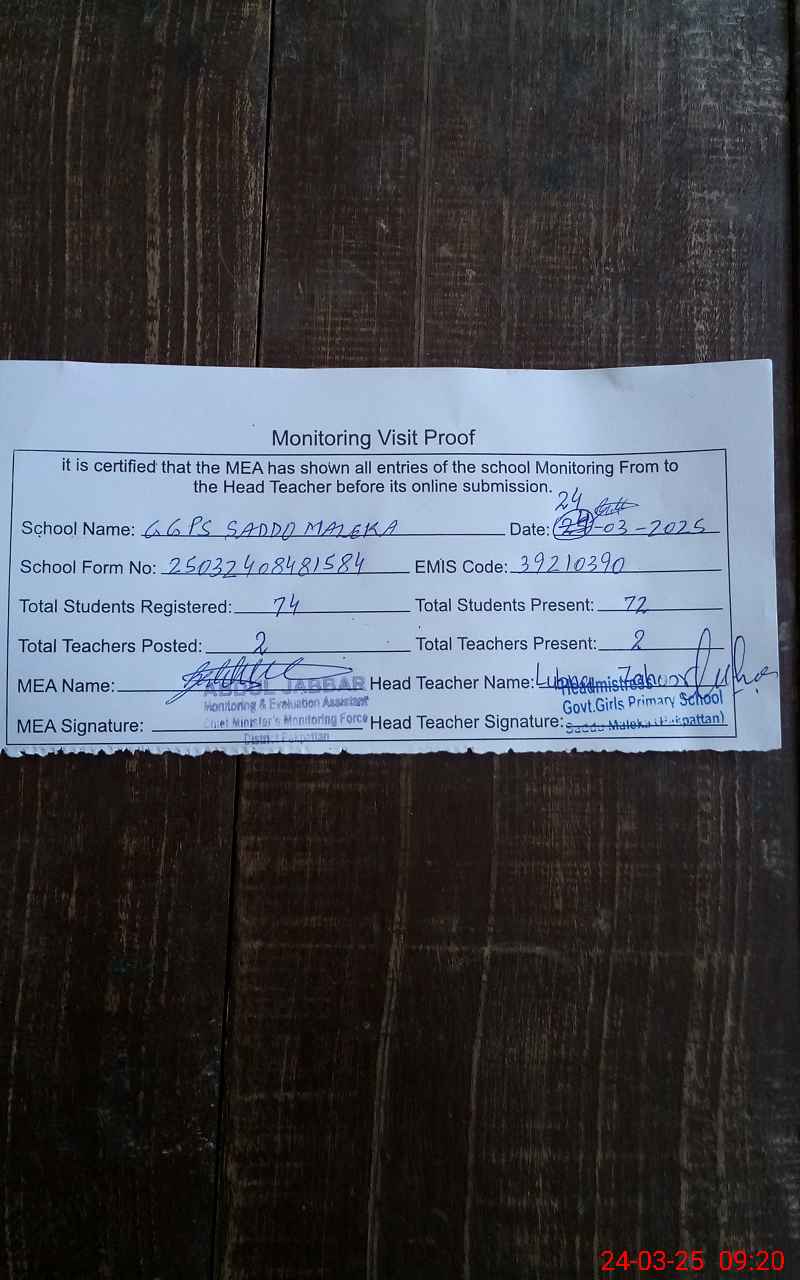 Monitoring Visit Proof
it is certified that the MEA has shown all entries of the school Monitoring From to
the Head Teacher before its online submission.
School Name: GGPS SADDO MALEKA Date: 24-03-2025
School Form No: 25032408481584 EMIS Code: 39210390
Total Students Registered: 74 Total Students Present: 72
Total Teachers Posted: 2 Total Teachers Present: 2
MEA Name: Head Teacher Name: Lubna Zahoor
ABDUL JABBAR
Monitoring & Evaluation Assistant
Chief Minister's Monitoring Force
District Pakpattan
Headmistress
Govt.Girls Primary School
Saddo Maleka (Pakpattan)
MEA Signature: Head Teacher Signature:
24-03-25 09:20